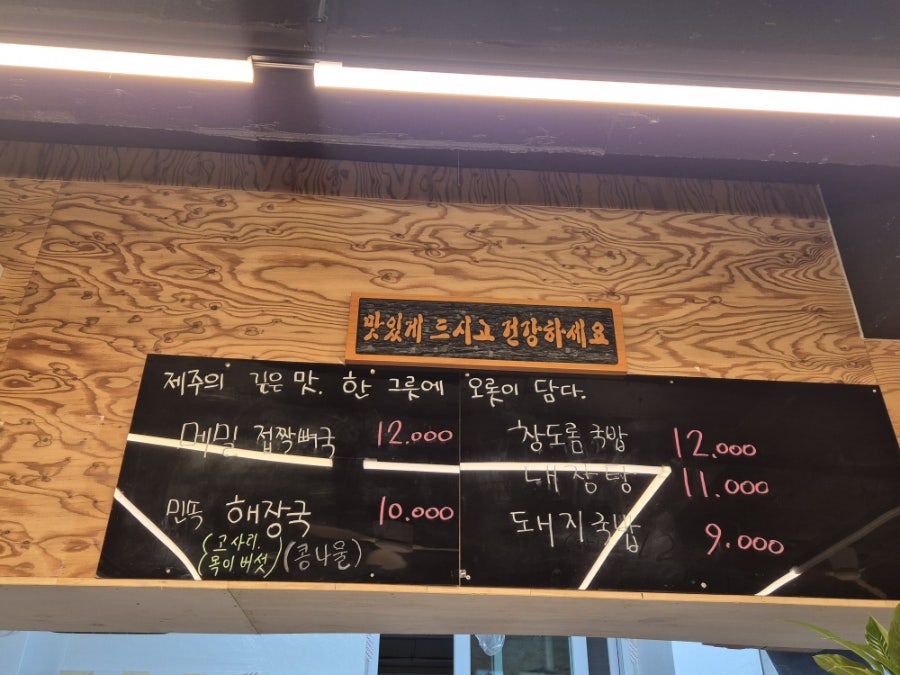 맛있게 드시고 건강하세요
제주의 깊은 맛. 한 그릇에 오롯이 담다.
메밀 접짝뼈국 12.000
민뜩 해장국 10.000
(고사리.
목이버섯)
(콩나물)
창도롬 국밥 12.000
내장탕 11.000
돼지국밥 9.000